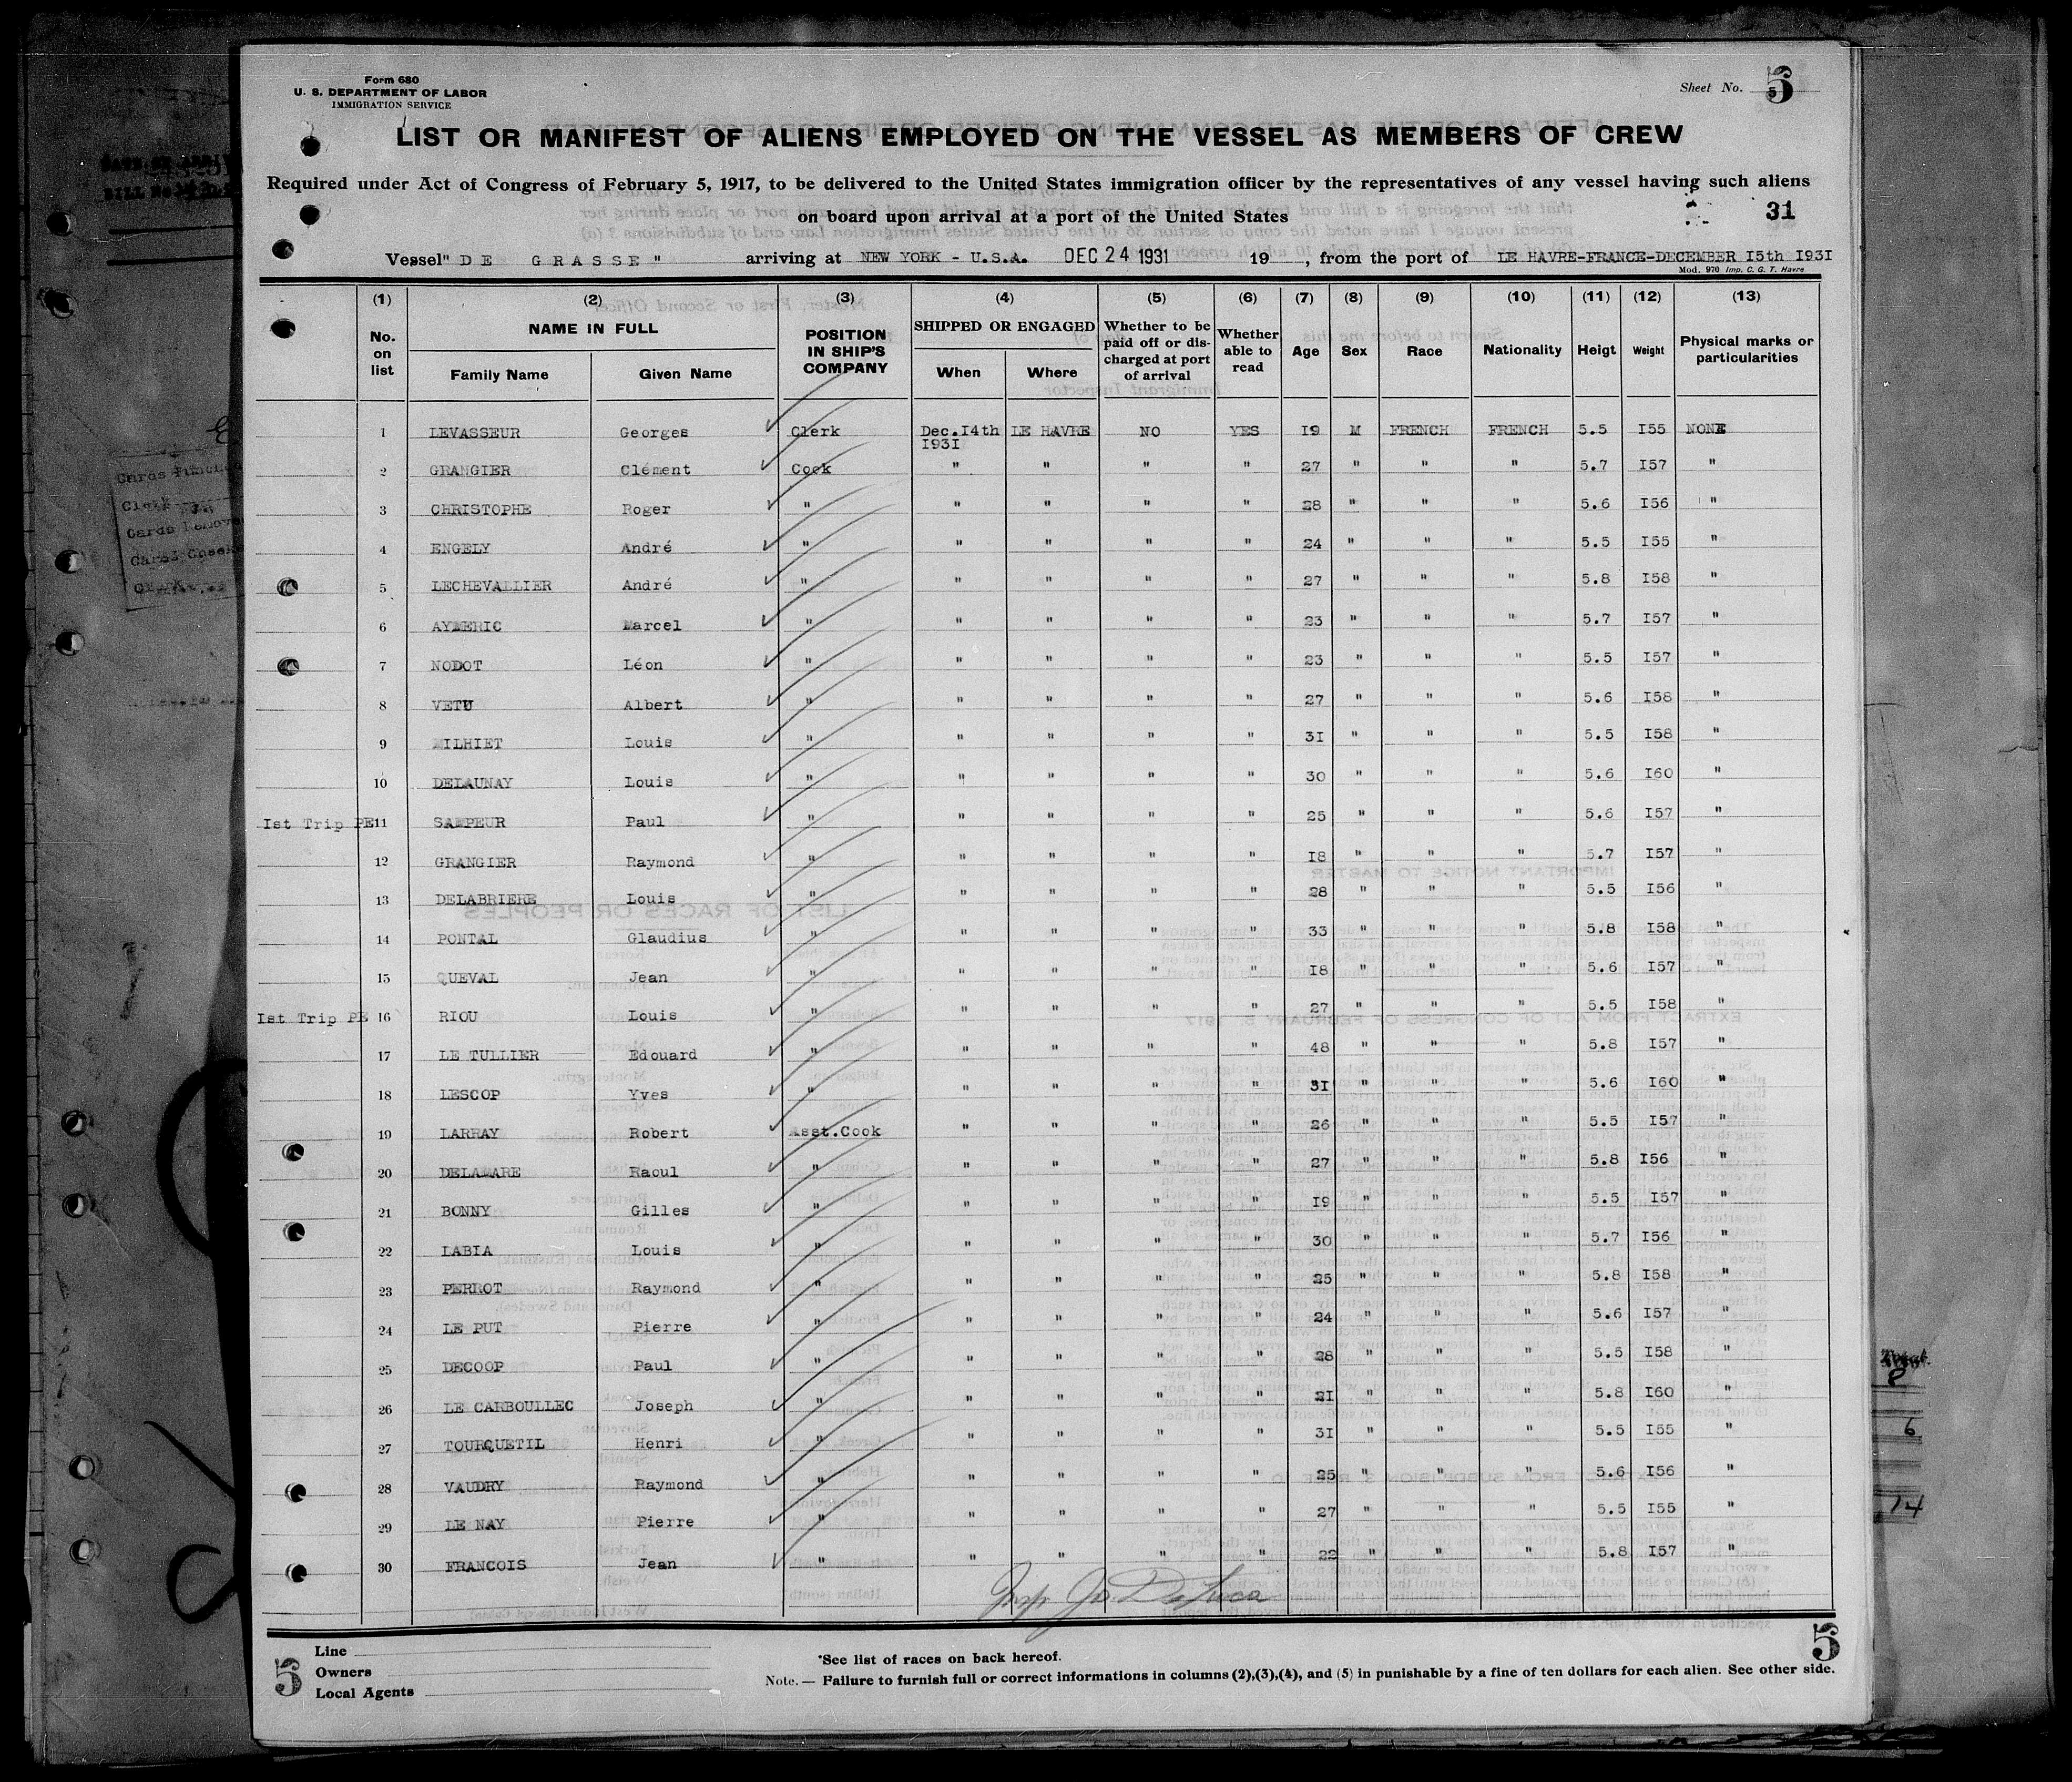 Form 680
U. S. DEPARTMENT OF LABOR
IMMIGRATION SERVICE
Sheet No. 5
5
LIST OR MANIFEST OF ALIENS EMPLOYED ON THE VESSEL AS MEMBERS OF CREW
Required under Act of Congress of February 5, 1917, to be delivered to the United States immigration officer by the representatives of any vessel having such aliens
on board upon arrival at a port of the United States
31
Vessel "DE GRASSE" arriving at NEW YORK - U.S.A. DEC 24 1931 19 , from the port of LE HAVRE-FRANCE-DECEMBER I5th I93I
Mod. 970 Imp. C. G. T. Havre
(1) (2) (3) (4) (5) (6) (7) (8) (9) (10) (11) (12) (13)
No. on list NAME IN FULL Family Name Given Name POSITION IN SHIP'S COMPANY SHIPPED OR ENGAGED When Where Whether to be paid off or discharged at port of arrival Whether able to read Age Sex Race Nationality Heigt Weight Physical marks or particularities
1 LEVASSEUR Georges Clerk Dec.I4th I93I LE HAVRE NO YES I9 M FRENCH FRENCH 5.5 I55 NONE
2 GRANGIER Clément Cook " " " " 27 " " " 5.7 I57 "
3 CHRISTOPHE Roger " " " " " 28 " " " 5.6 I56 "
4 ENGELY André " " " " " 24 " " " 5.5 I55 "
5 LECHEVALLIER André " " " " " 27 " " " 5.8 I58 "
6 AYMERIC Marcel " " " " " 23 " " " 5.7 I57 "
7 NODOT Léon " " " " " 23 " " " 5.5 I57 "
8 VETU Albert " " " " " 27 " " " 5.6 I58 "
9 MILHIET Louis " " " " " 3I " " " 5.5 I58 "
10 DELAUNAY Louis " " " " " 30 " " " 5.6 I60 "
Ist Trip PE 11 SAMPEUR Paul " " " " " 25 " " " 5.6 I57 "
12 GRANGIER Raymond " " " " " I8 " " " 5.7 I57 "
13 DELABRIERE Louis " " " " " 28 " " " 5.5 I56 "
14 PONTAL Glaudius " " " " " 33 " " " 5.8 I58 "
15 QUEVAL Jean " " " " " I8 " " " 5.6 I57 "
Ist Trip PE 16 RIOU Louis " " " " " 27 " " " 5.5 I58 "
17 LE TULLIER Edouard " " " " " 48 " " " 5.8 I57 "
18 LESCOP Yves " " " " " 3I " " " 5.6 I60 "
19 LARRAY Robert Asst.Cook " " " " 26 " " " 5.5 I57 "
20 DELAMARE Raoul " " " " " 27 " " " 5.8 I56 "
21 BONNY Gilles " " " " " I9 " " " 5.5 I57 "
22 LABIA Louis " " " " " 30 " " " 5.7 I56 "
23 PERROT Raymond " " " " " 25 " " " 5.8 I58 "
24 LE PUT Pierre " " " " " 24 " " " 5.6 I57 "
25 DECOOP Paul " " " " " 28 " " " 5.5 I58 "
26 LE CARBOULLEC Joseph " " " " " 2I " " " 5.8 I60 "
27 TOURQUETIL Henri " " " " " 3I " " " 5.5 I55 "
28 VAUDRY Raymond " " " " " 25 " " " 5.6 I56 "
29 LE NAY Pierre " " " " " 27 " " " 5.5 I55 "
30 FRANCOIS Jean " " " " " 22 " " " 5.8 I57 "
Insp Jo. DeLuca
Line
Owners
Local Agents
5
*See list of races on back hereof.
Note. — Failure to furnish full or correct informations in columns (2),(3),(4), and (5) in punishable by a fine of ten dollars for each alien. See other side.
5
8
6
14